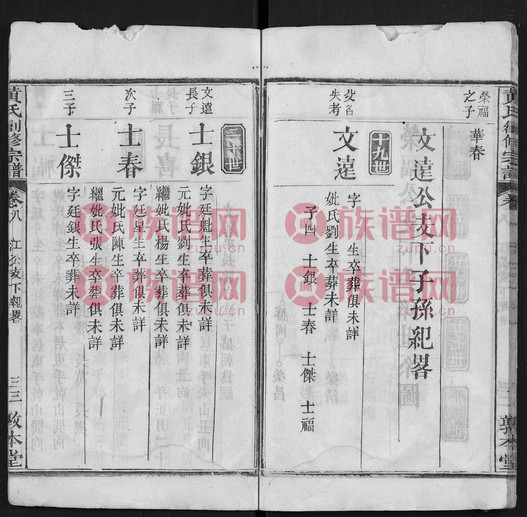 榮福之子
華春
文達公支下子孫紀畧
十九世
父名失考
文達
字 生卒葬俱未詳
妣氏劉生卒葬未詳
子四 士銀 士春 士傑 士福
二十世
文達長子
士銀
字廷魁生卒葬俱未詳
元妣氏劉生卒葬俱未詳
繼妣氏楊生卒葬俱未詳
次子
士春
字廷星生卒葬俱未詳
元妣氏陳生卒葬俱未詳
繼妣氏張生卒葬俱未詳
三子
士傑
字廷銀生卒葬俱未詳
黄氏創修宗譜
卷八
江公支下紀畧
三三
敦本堂
族谱网
zupu.cn